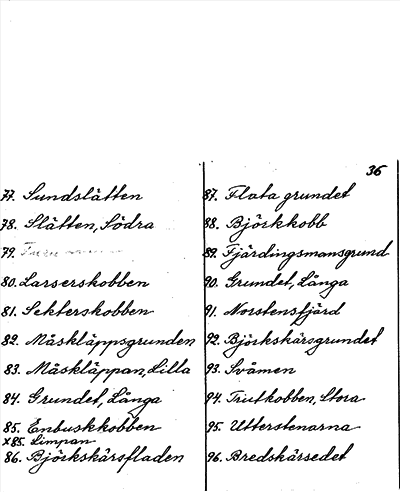 36
77. Sundslätten
78. Slätten, Södra
79.
80. Larserskobben
81. Sekterskobben
82. Måskläppsgrunden
83. Måskläppan, Lilla
84. Grundet, Långa
85. Enbuskkobben
x85. Limpan
86. Björkskärsfladen
87. Flata grundet
88. Björkkobb
89. Fjärdingsmansgrund
90. Grundet, Långa
91. Norstensfjärd
92. Björkskärsgrundet
93. Svåmen
94. Trutkobben, Stora
95. Utterstenarna
96. Bredskärsedet